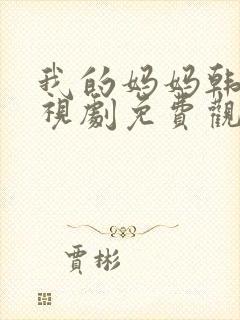 我的妈妈韩
視劇免費觀
賈彬